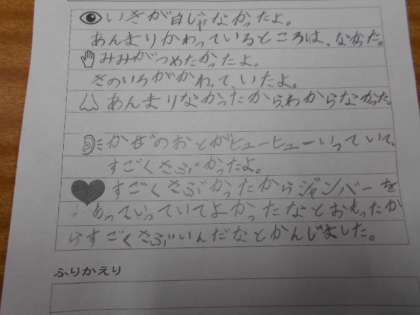 いきが白じゃなかったよ。
あんまりかわっているところは、なかった。
みみがつめたかったよ。
きのいろがかわって、いたよ。
あんまりなかったからわからなかった。
かぜのおとがヒューヒューいっていて、
すごくさぶかったよ。
すごくさぶかったからジャンバーを
もっていっていてよかったなとおもったか
らすごくさぶいんだなとかんじました。
ふりかえり